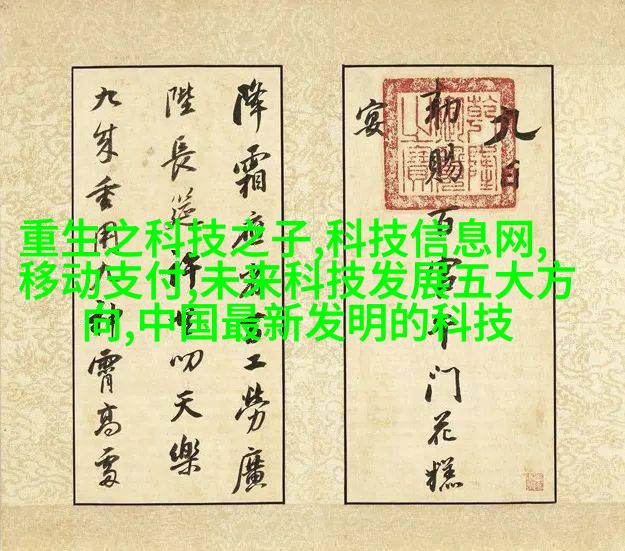 重生之科技之子,科技信息网,
移动支付,未来科技发展五大方
向,中国最新发明的科技
九日
勅賜百官午門花糕
宴
降霜工勞廣
陛長筵許叨天樂
九成重霄高